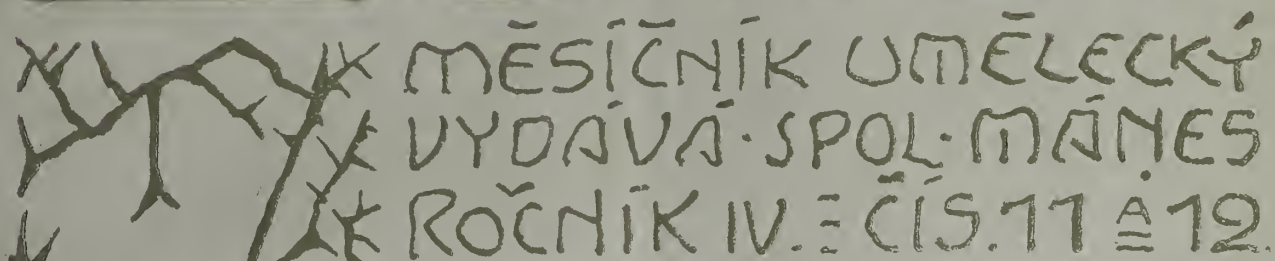 MĚSÍČNÍK UMĚLECKÝ
VYDÁVÁ · SPOL · MÁNES
ROČNÍK IV. ČÍS. 11 A 12.